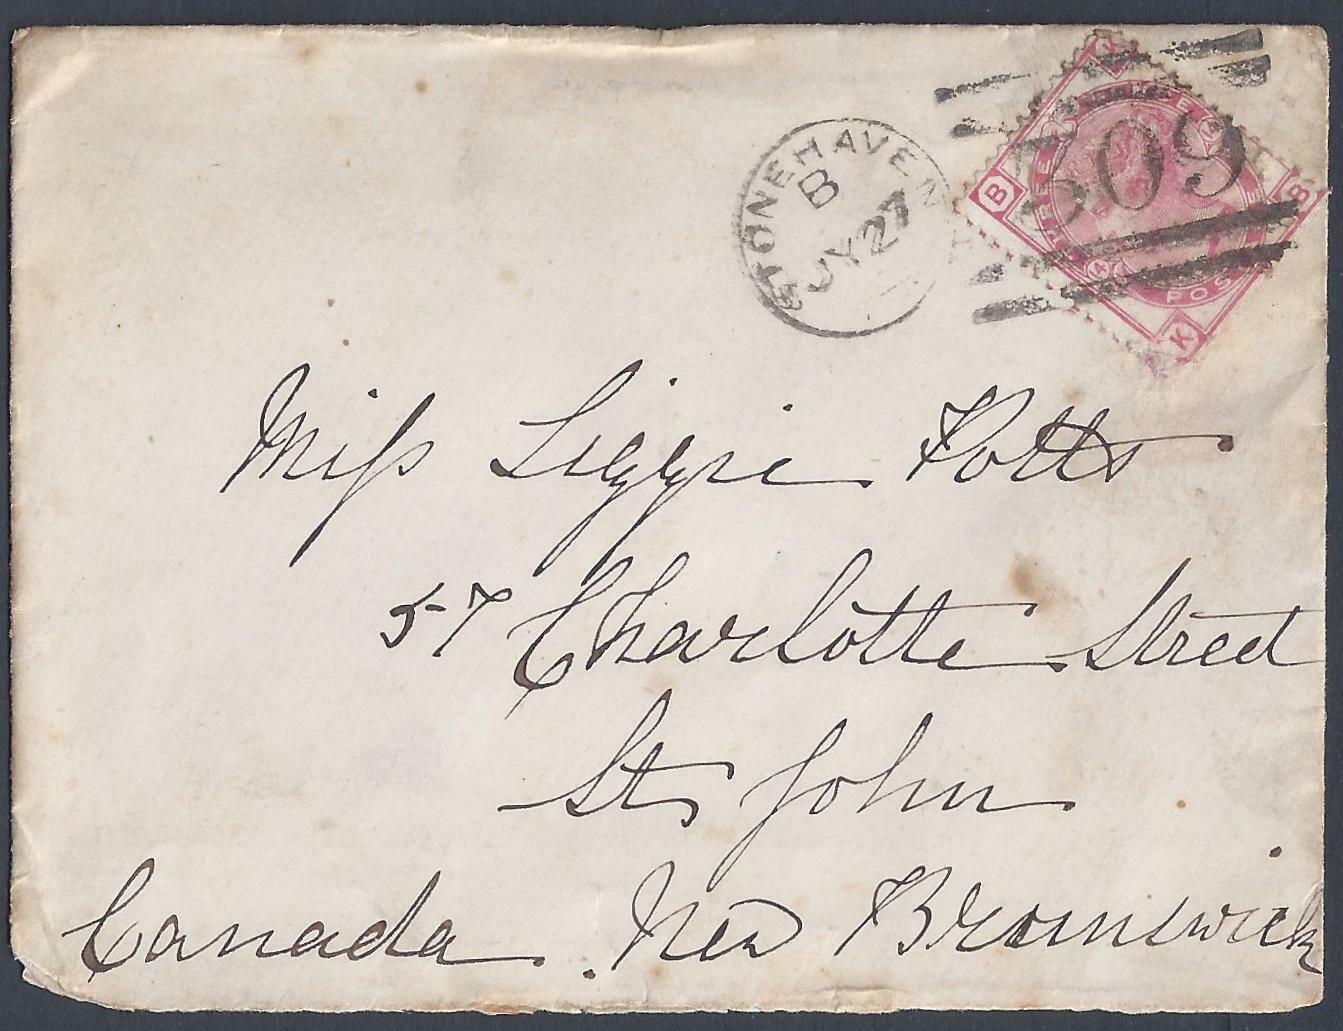 STONEHAVEN
B
JY 27
309
B
B
K
POS
Miss Lizzie Potts
57 Charlotte Street
St John
Canada. New Brounswick